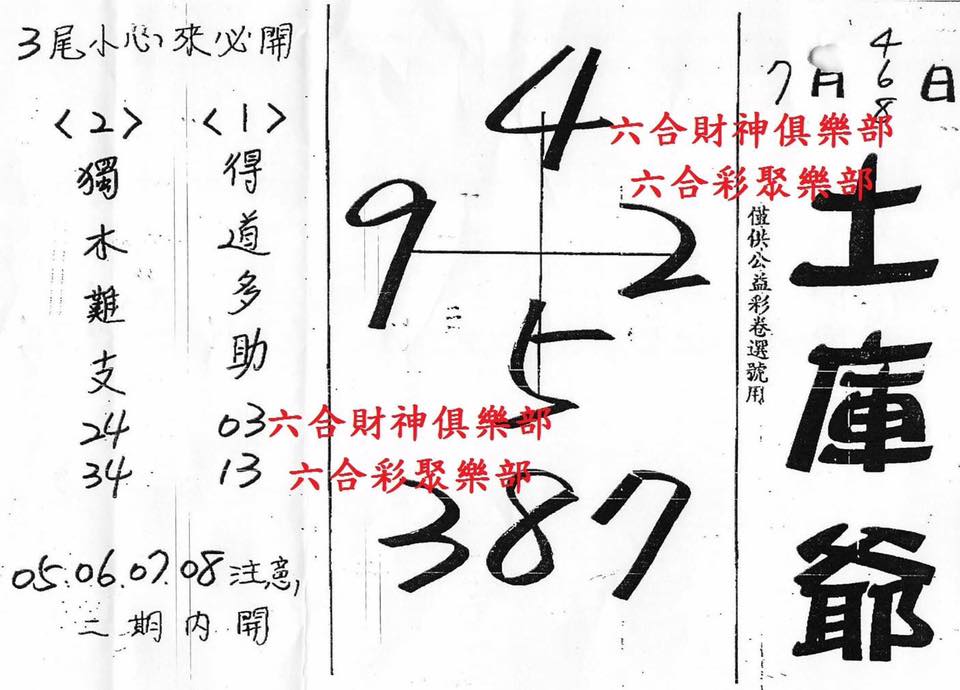 7月4 6 8日
土庫爺
僅供公益彩卷選號用
六合財神俱樂部
六合彩聚樂部
4
9 2
5
387
六合財神俱樂部
六合彩聚樂部
3尾小心來必開
<1>
得道多助
03
13
<2>
獨木難支
24
34
05.06.07.08注意,
二期內開